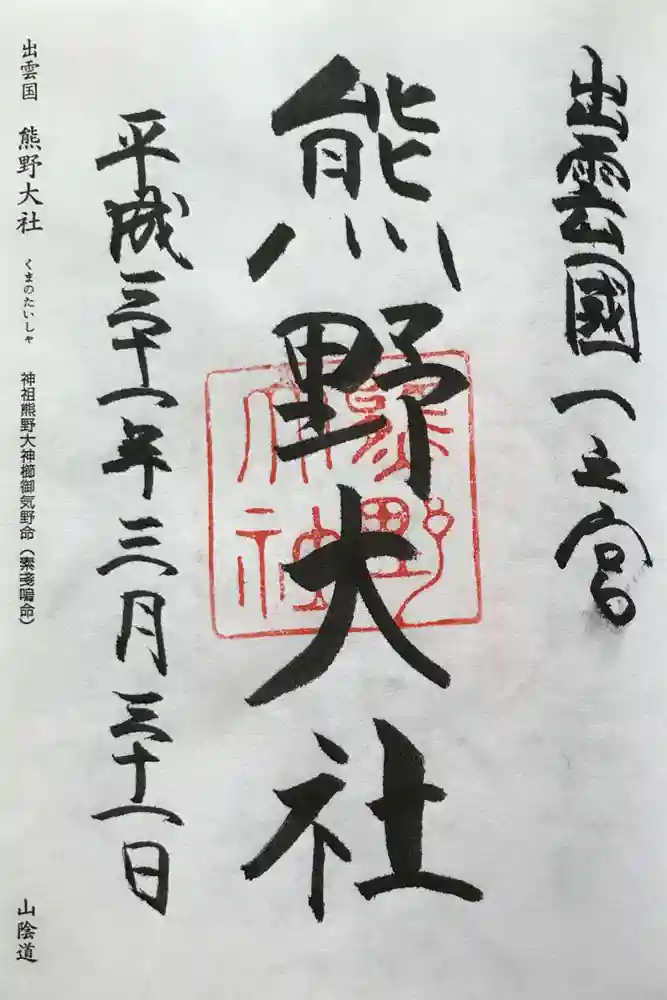 出雲國一之宮
熊野大社
平成三十一年三月三十一日
出雲国 熊野大社 くまのたいしゃ 神祖熊野大神櫛御気野命（素戔嗚命）
山陰道